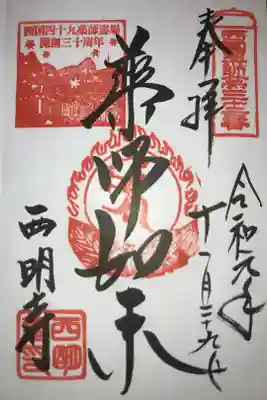 奉拝
令和元年
十一月二十九日
薬師如来
西国四十九薬師霊場
開創三十周年
西明寺